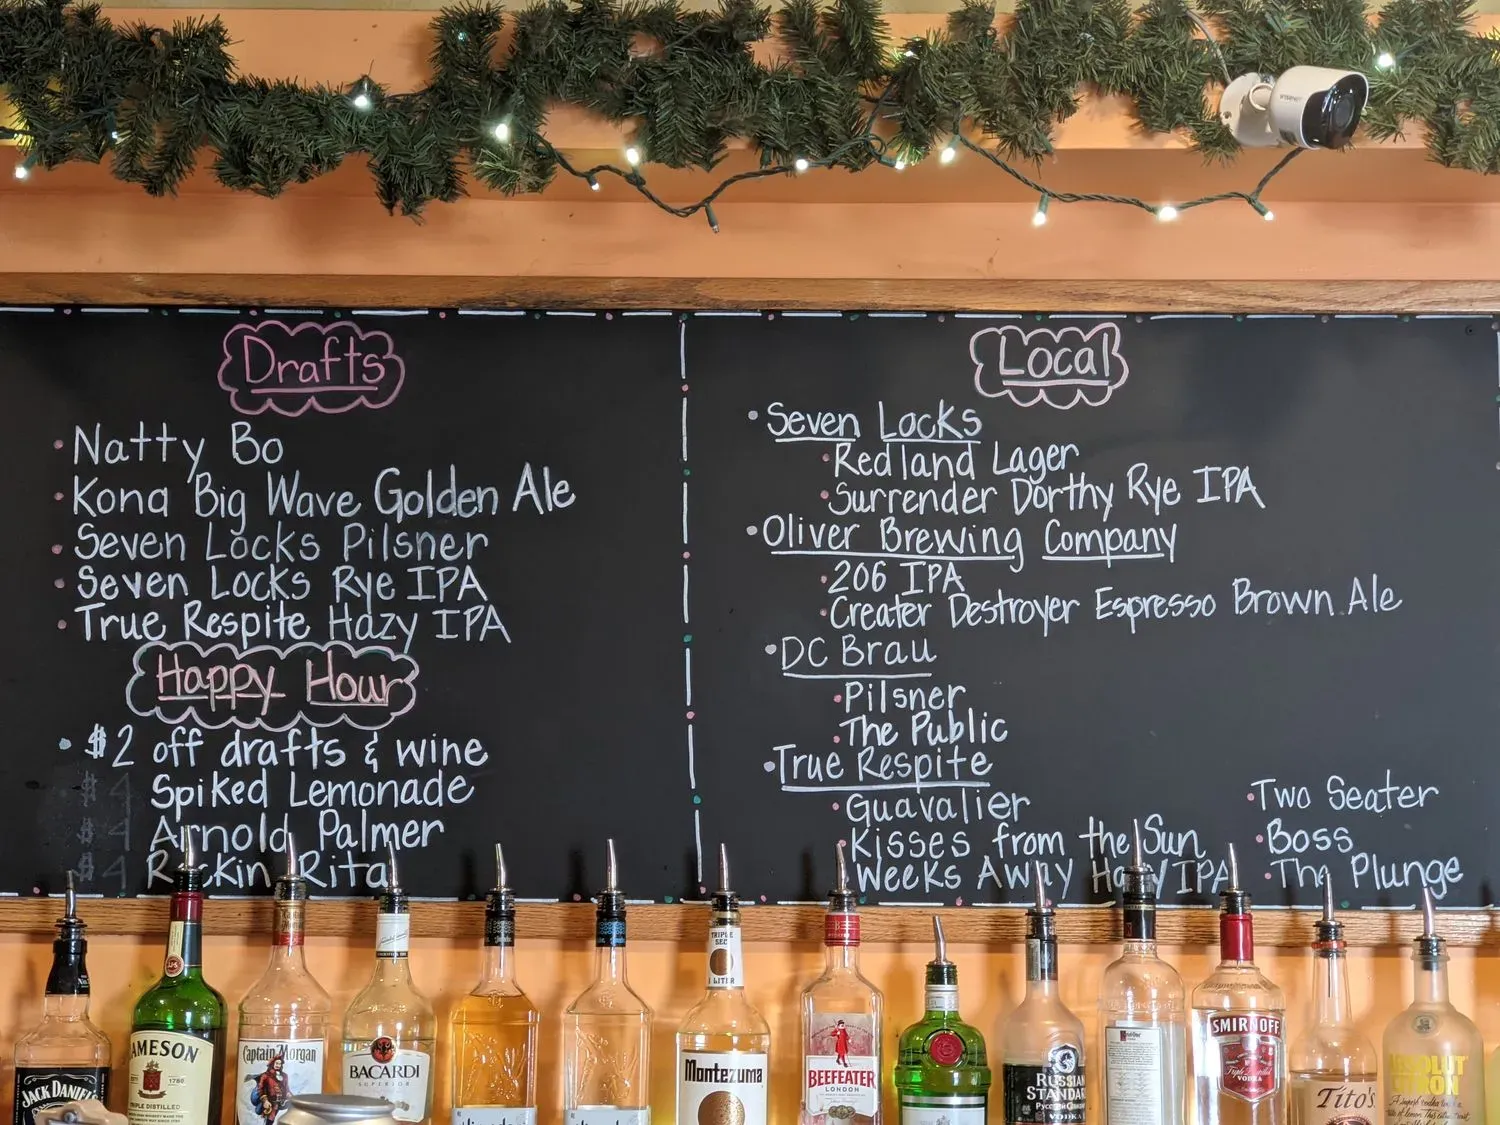 Drafts
Natty Bo
Kona Big Wave Golden Ale
Seven Locks Pilsner
Seven Locks Rye IPA
True Respite Hazy IPA
Happy Hour
$2 off drafts & wine
$4 Spiked Lemonade
$4 Arnold Palmer
$4 Rockin Rita
Local
Seven Locks
Redland Lager
Surrender Dorthy Rye IPA
Oliver Brewing Company
206 IPA
Creater Destroyer Espresso Brown Ale
DC Brau
Pilsner
The Public
True Respite
Guavalier
Kisses from the Sun
Weeks Away Hazy IPA
Two Seater
Boss
The Plunge
JACK DANIEL'S
JAMESON
1780
TRIPLE DISTILLED
Captain Morgan
BACARDI
SUPERIOR
TRIPLE SEC
1 LITER
Montezuma
BEEFEATER
LONDON
RUSSIAN
STANDARD
VODKA
SMIRNOFF
Triple Distilled
VODKA
Tito's
ABSOLUT
CITRON